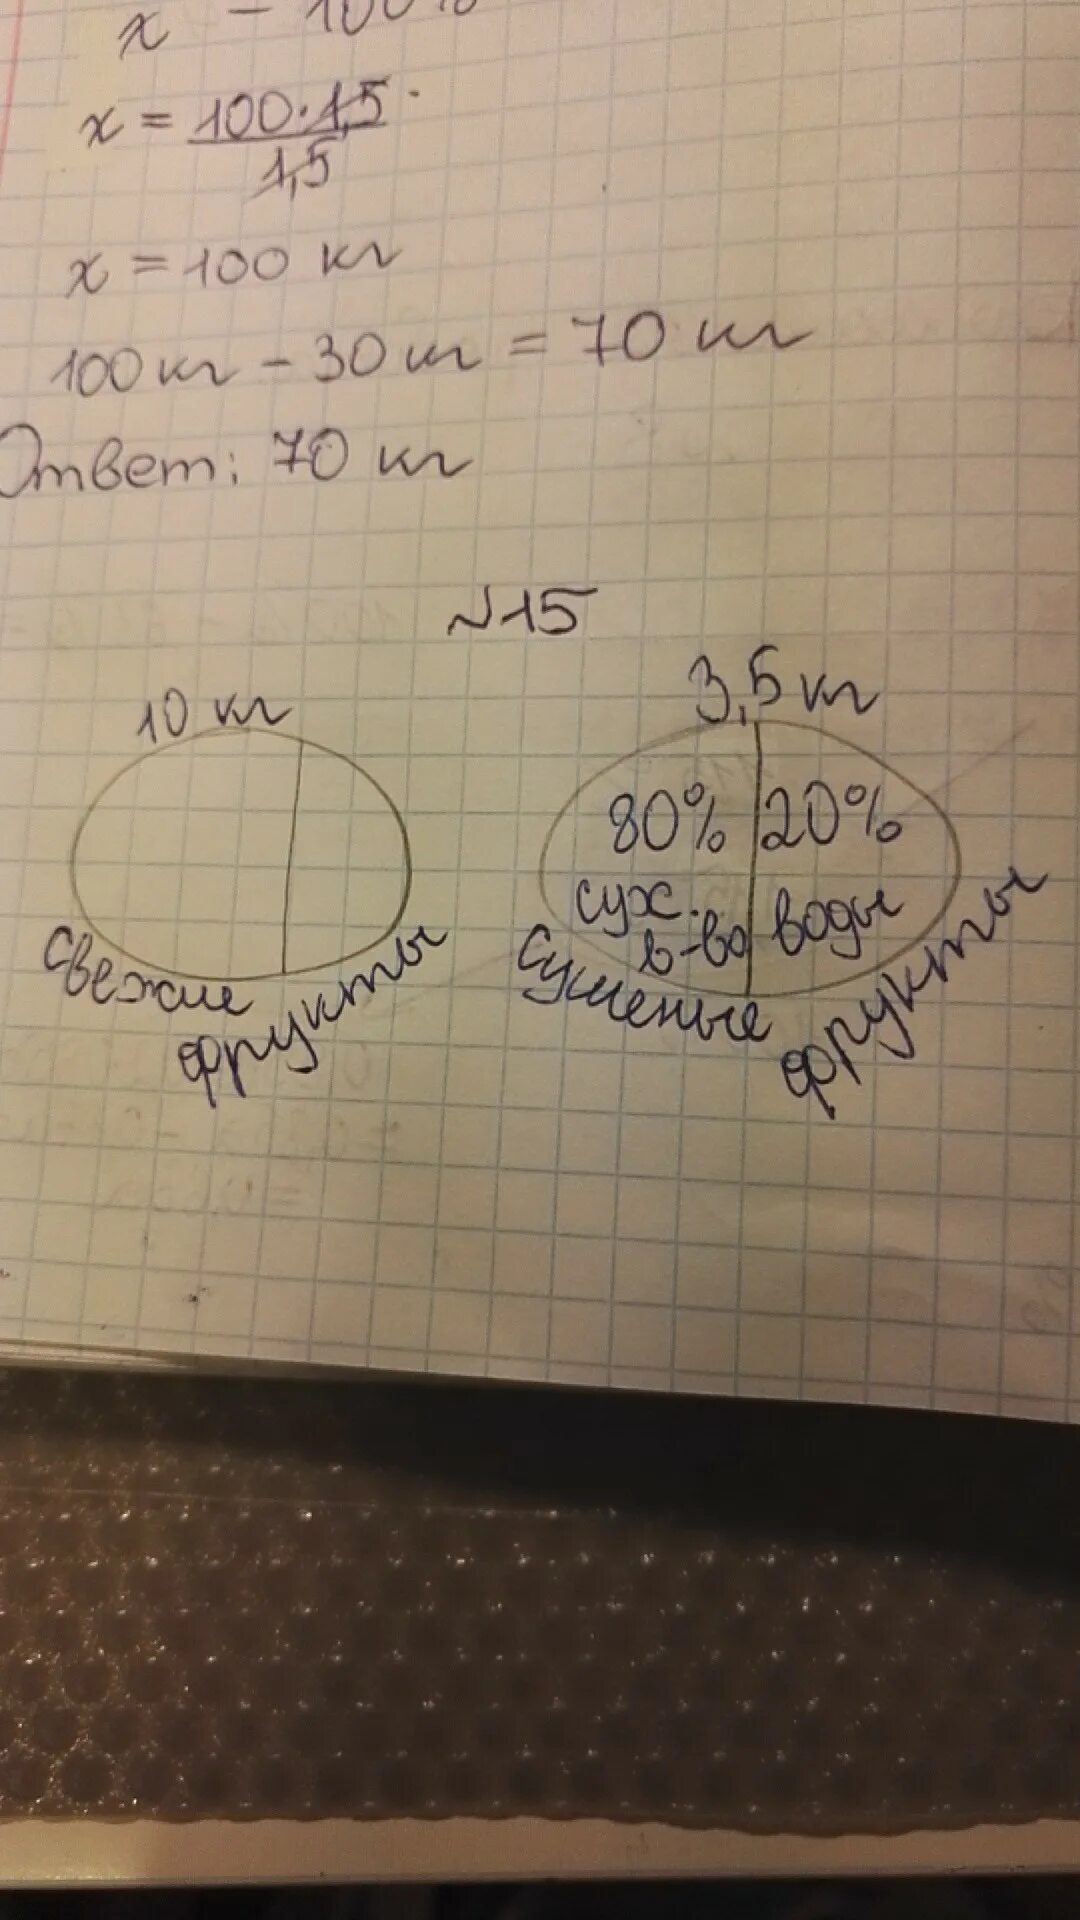 x - 100%
x = 100·1,5
1,5
x = 100 кг
100 кг - 30 кг = 70 кг
Ответ: 70 кг
№15
10 кг
3,5 кг
80% 20%
сух. воды
в-во
свежие фрукты
сушеные фрукты